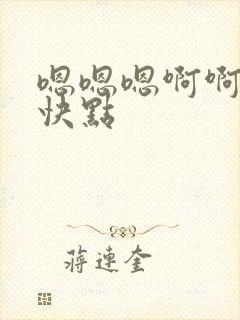 嗯嗯嗯啊啊
快點
蔣連奎